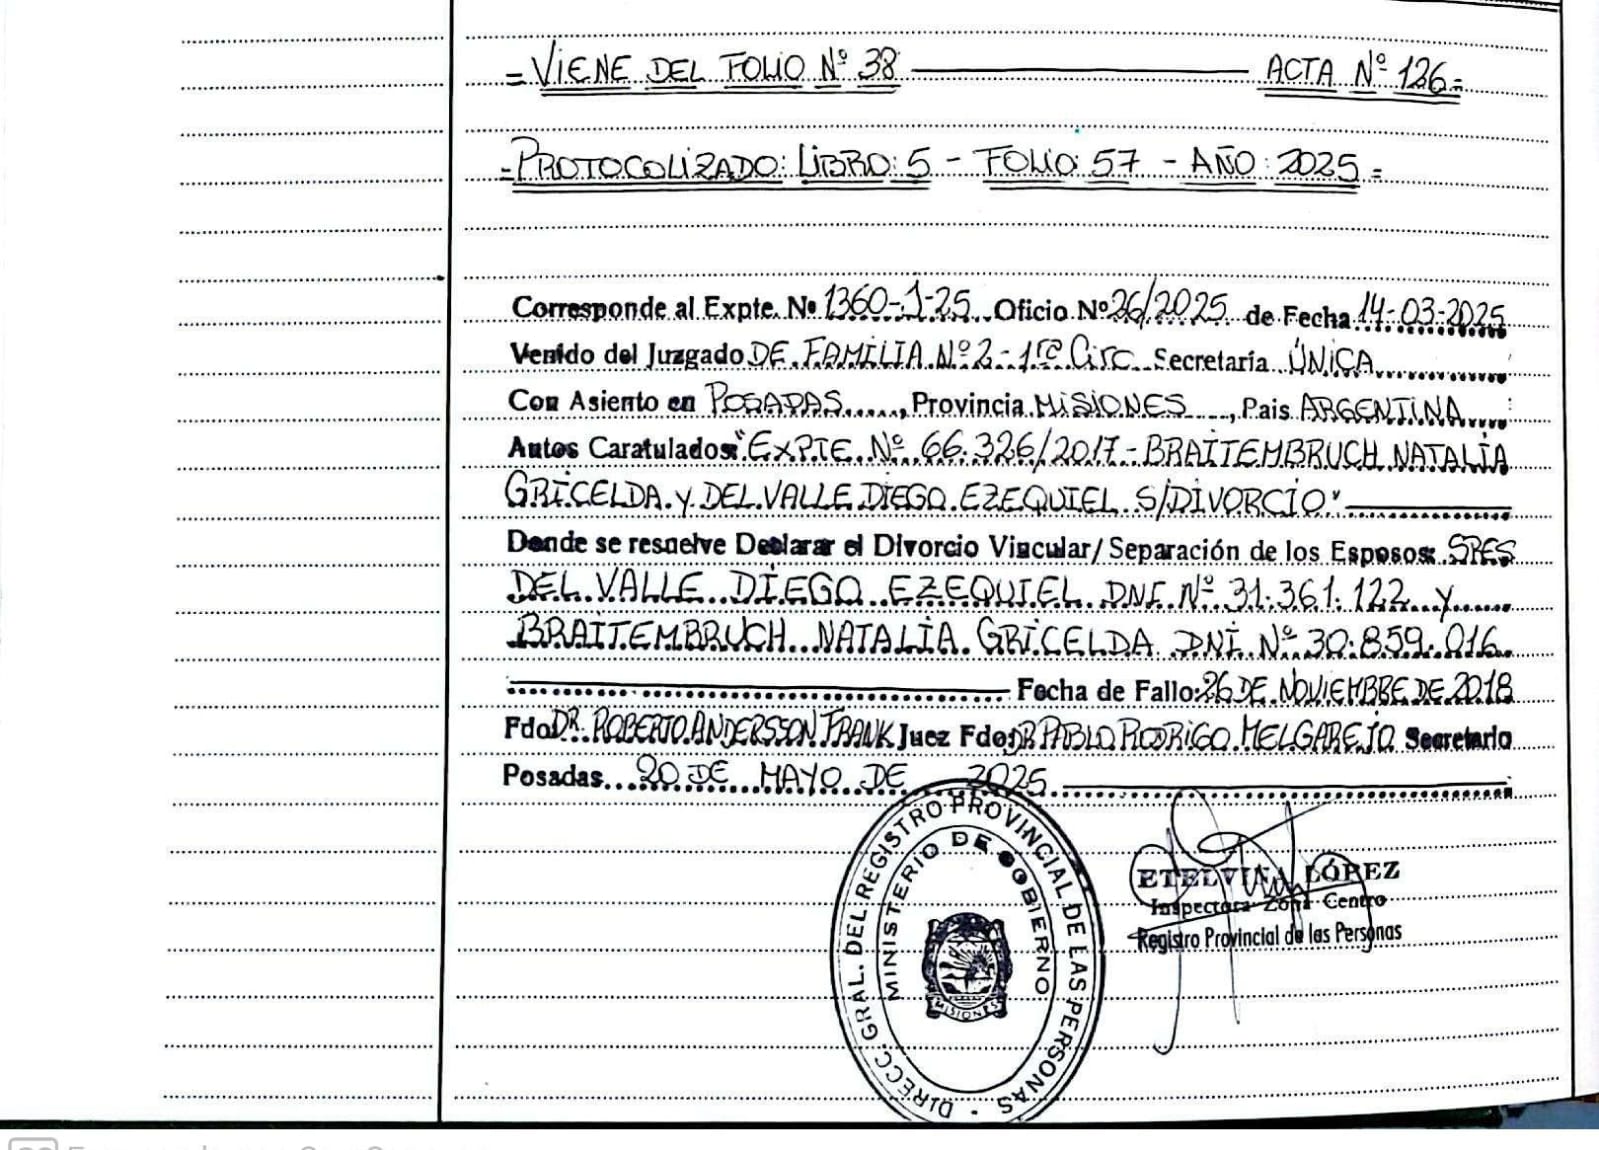 = VIENE DEL FOLIO Nº 38 ACTA Nº 126=
= PROTOCOLIZADO: LIBRO: 5 - FOLIO: 57 - AÑO: 2025 =
Corresponde al Expte. Nº 1360-J-25 Oficio Nº 26/2025 de Fecha 14-03-2025
Venido del Juzgado DE FAMILIA Nº 2 - 1ra Circ Secretaría ÚNICA
Con Asiento en POSADAS, Provincia MISIONES, Pais ARGENTINA
Autos Caratulados: "EXPTE Nº 66.326/2017 - BRAITEMBRUCH NATALIA
GRICELDA y DEL VALLE DIEGO EZEQUIEL S/DIVORCIO"
Donde se resuelve Declarar el Divorcio Vincular/Separación de los Esposos: SRES
DEL VALLE DIEGO EZEQUIEL DNI Nº 31.361.122 y
BRAITEMBRUCH NATALIA GRICELDA DNI Nº 30.859.016
Fecha de Fallo: 26 DE NOVIEMBRE DE 2018
Fdo DR. ROBERTO ANDERSSON FRANK Juez Fdo: DR PABLO RODRIGO MELGAREJO Secretario
Posadas 20 DE MAYO DE 2025
DIRECC. GRAL. DEL REGISTRO PROVINCIAL DE LAS PERSONAS
MINISTERIO DE GOBIERNO
MISIONES
ETELVINA LÓPEZ
Inspectora Zona Centro
Registro Provincial de las Personas